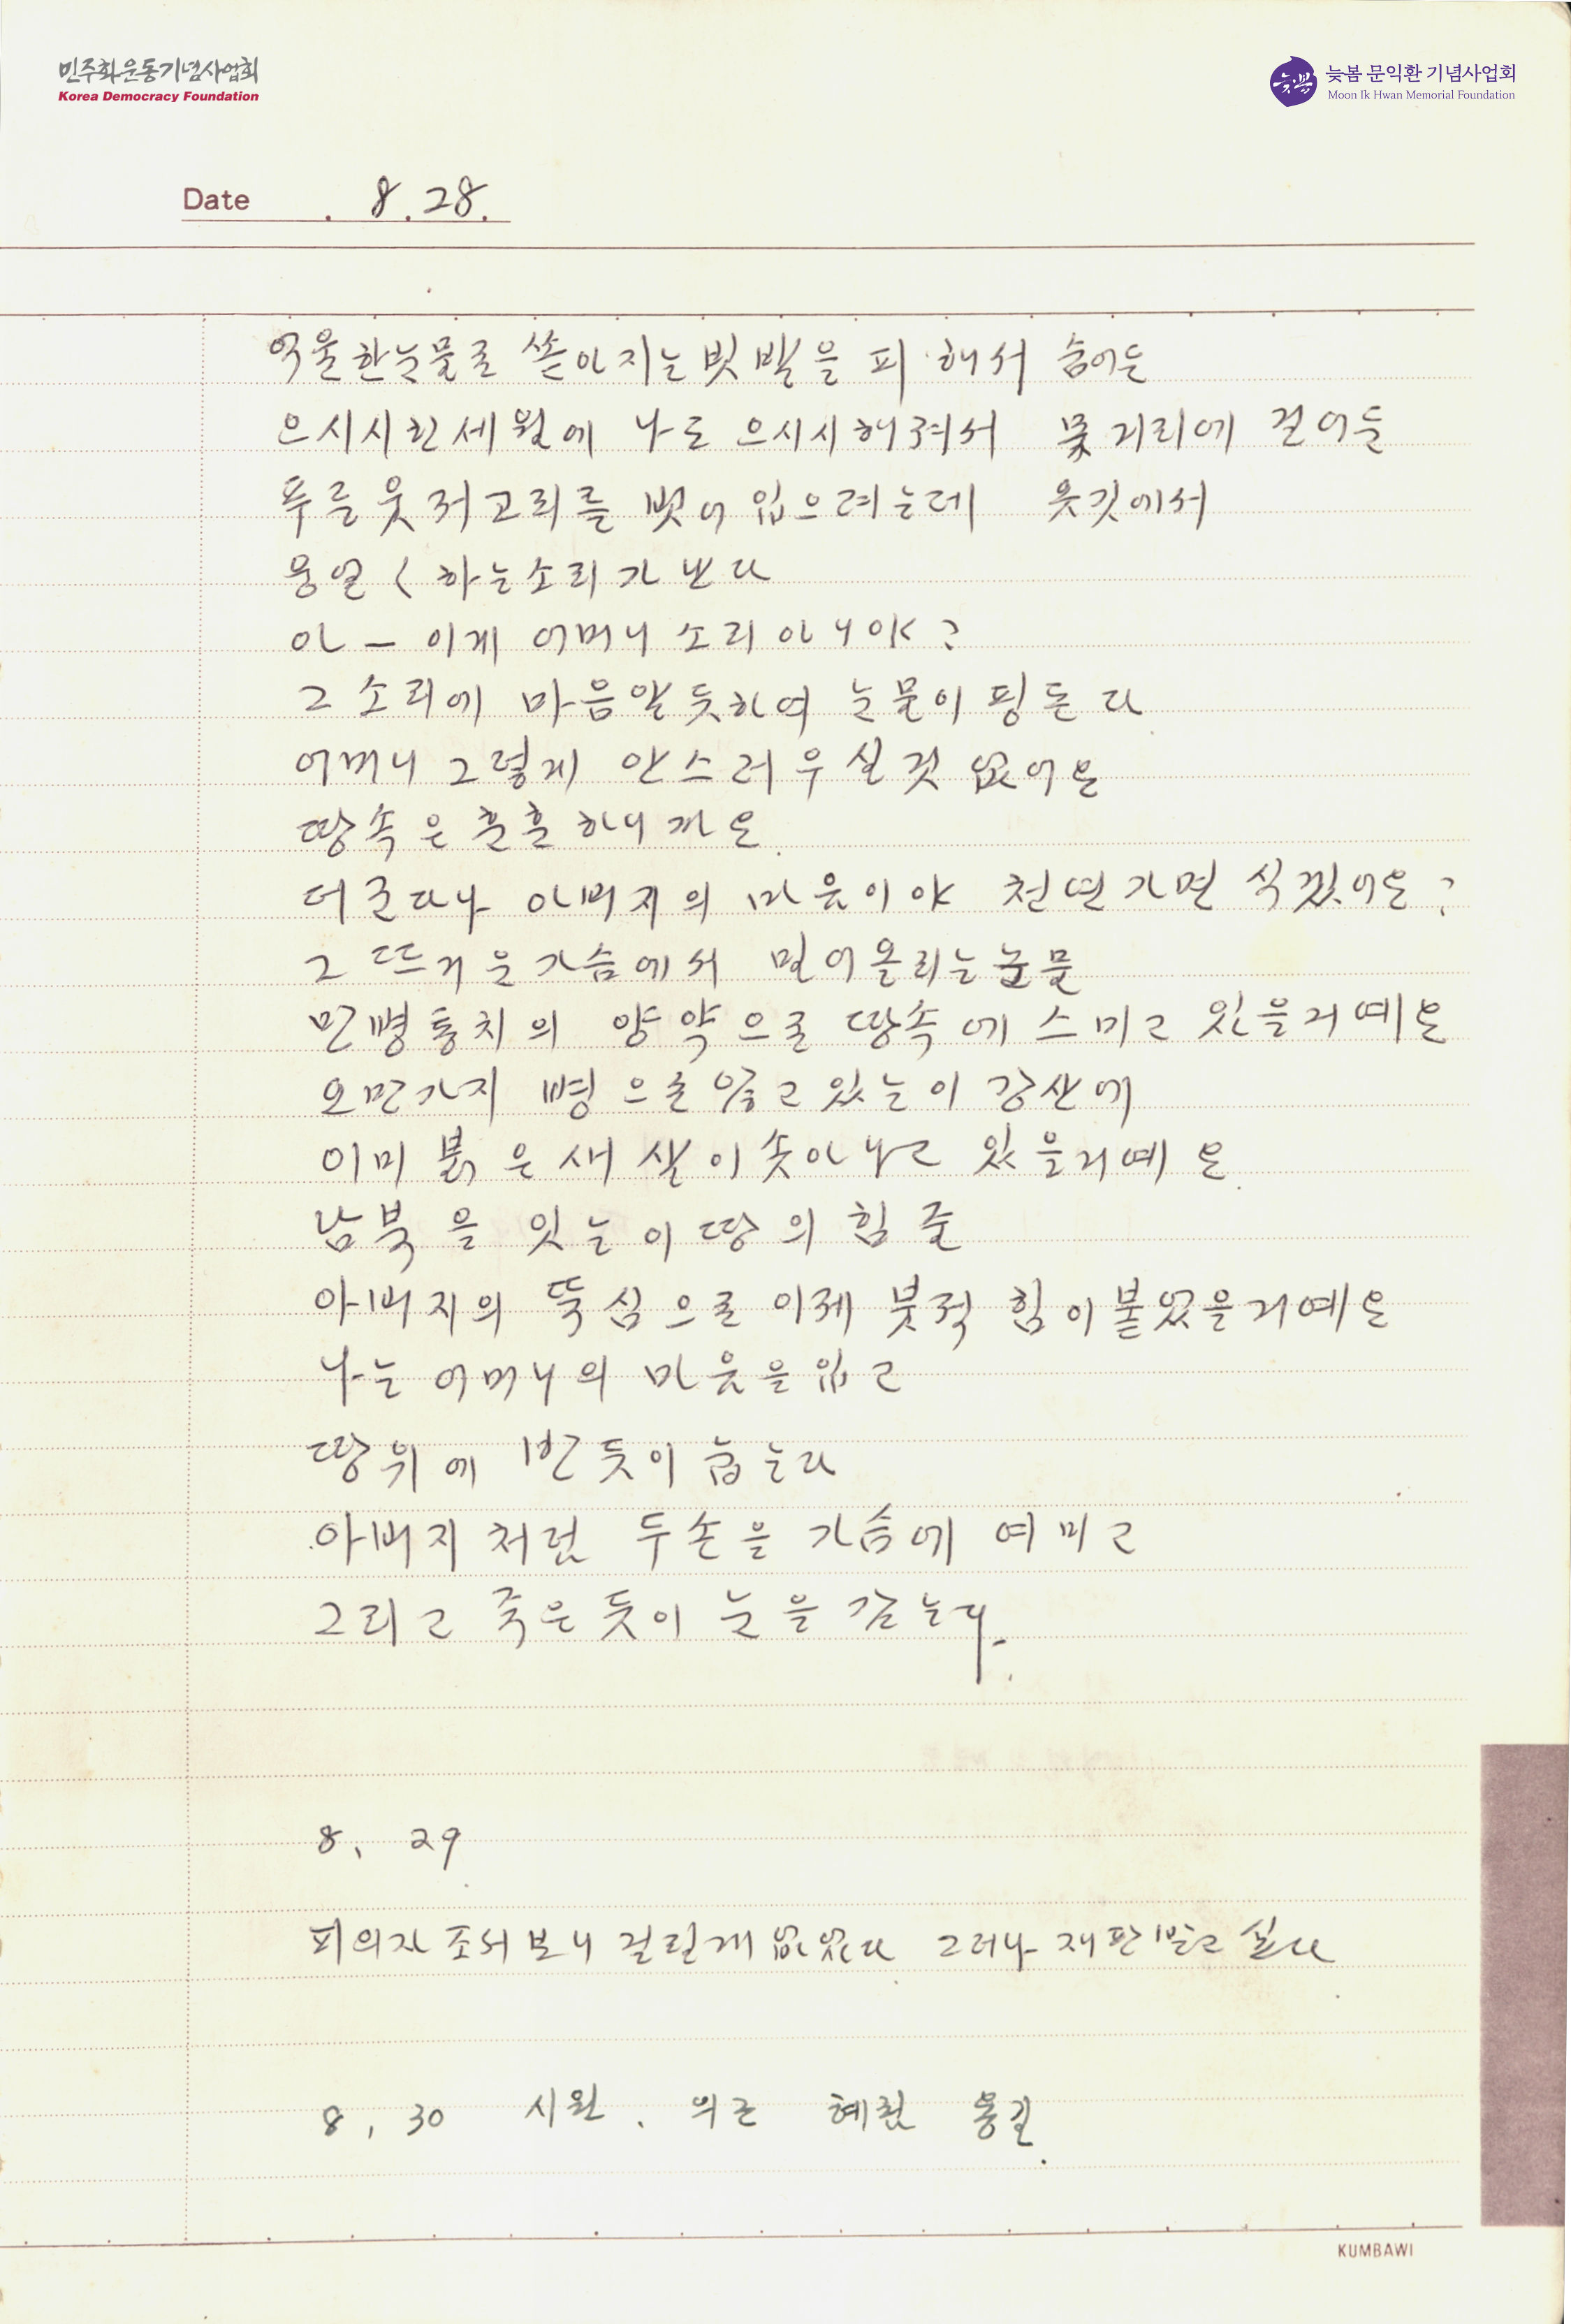 민주화운동기념사업회
Korea Democracy Foundation
늦봄 문익환 기념사업회
Moon Ik Hwan Memorial Foundation
Date . 8.28.
억울한 눈물로 쏟아지는 빗발을 피해서 숨어든
으시시한 세월에 나도 으시시해져서 못거리에 걸어둔
푸른 웃저고리를 벗어 입으려는데 옷깃에서
웅얼 < 하는 소리가 난다
아 — 이게 어머니 소리 아니야?
그 소리에 마음 알듯하여 눈물이 핑돈다
어머니 그렇게 안스러우실것 없어요
땅속은 훈훈하니까요.
더군다나 아버지의 마음이야 천년가면 식겠어요?
그 뜨거운 가슴에서 퍼어올리는 눈물
만병통치의 양약으로 땅속에 스미고 있을거예요
오만가지 병으로 앓고 있는 이 강산에
이미 붉은 새살이 솟아나고 있을거예요.
남북을 잇는 이 땅의 힘줄
아버지의 뚝심으로 이제 부쩍 힘이 붙었을거예요
나는 어머니의 마음을 입고
땅위에 반듯이 눕는다
아버지처럼 두손을 가슴에 여미고
그리고 죽은듯이 눈을 감는다.
8, 29
피의자 조서 보니 걸릴게 없었다. 그러나 재판받고 싶다.
8, 30 시원. 의근 혜원 몽길.
KUMBAWI